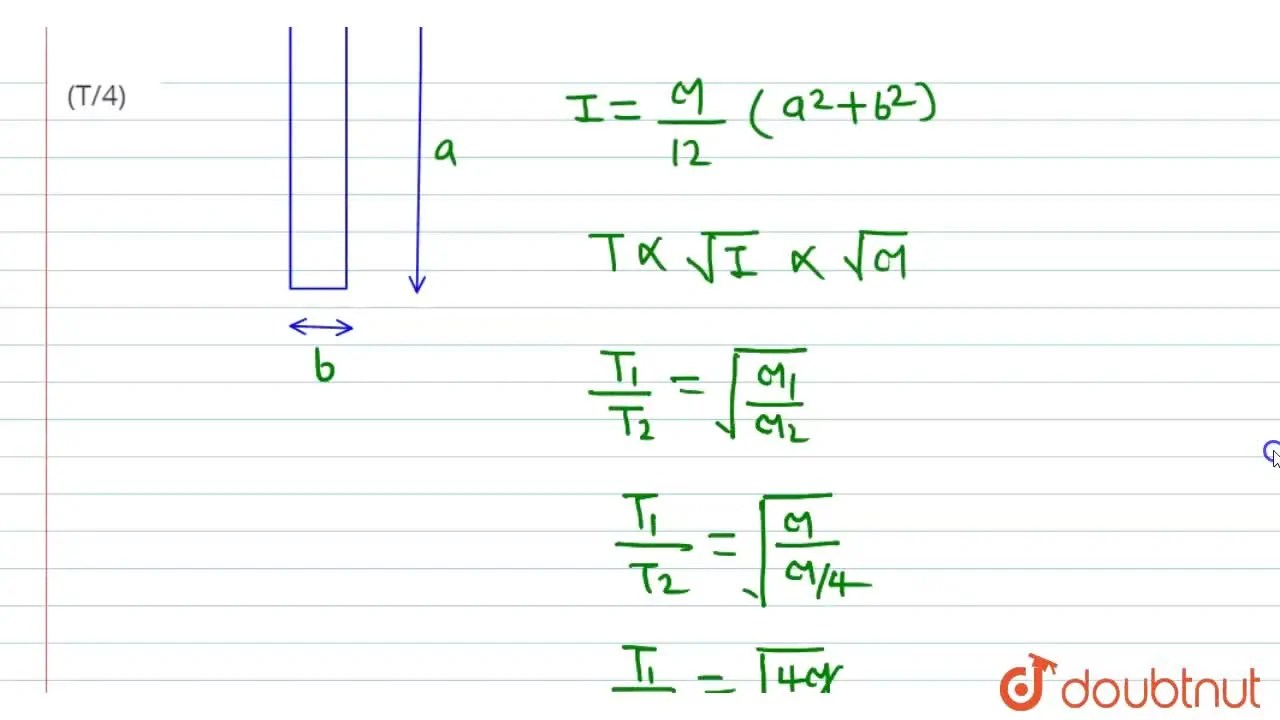 (T/4)
a
b
I = M/12 (a² + b²)
T ∝ √I ∝ √M
T₁/T₂ = √(M₁/M₂)
T₁/T₂ = √(M/(M/4))
T₁ = √4M
doubtnut